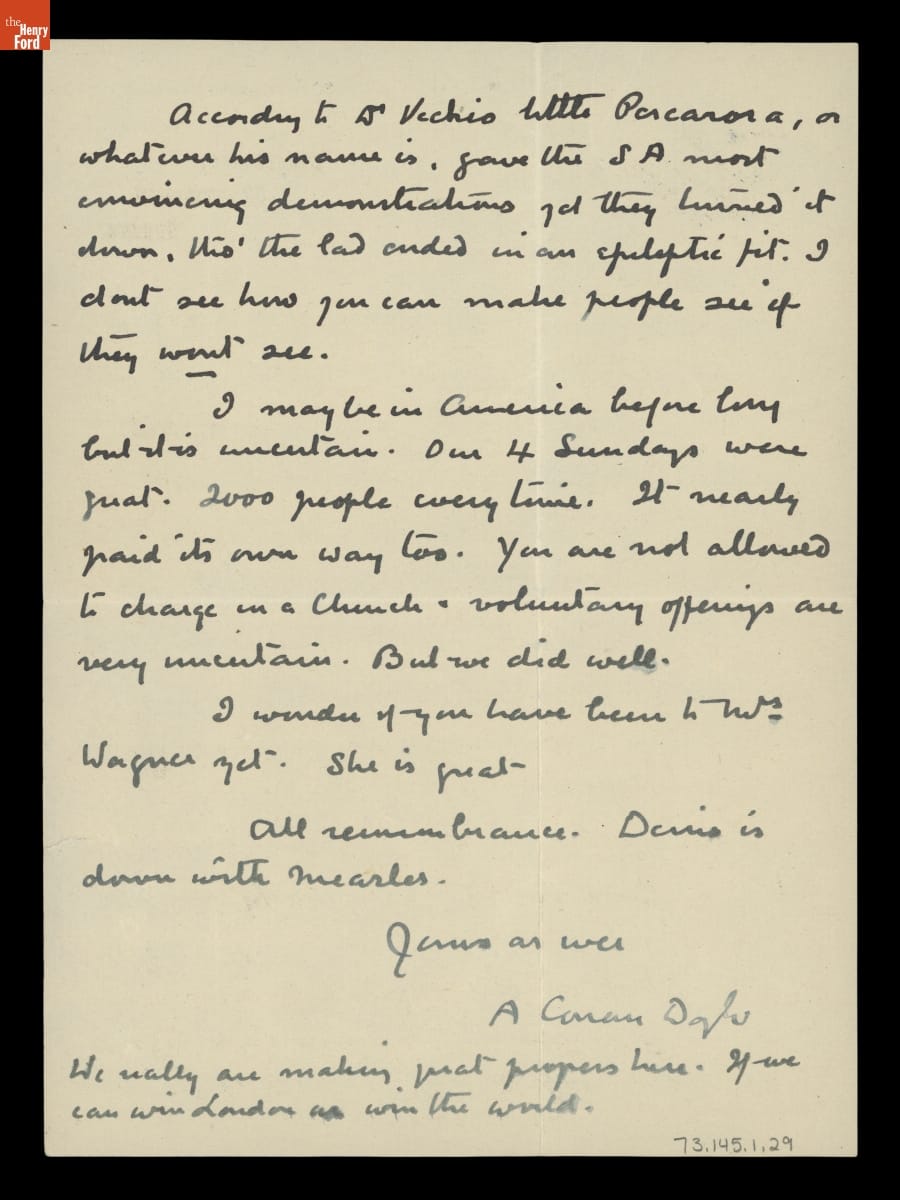 the
Henry
Ford
According to Dr Vechio little Pescarora, or
whatever his name is, gave the S A most
convincing demonstrations yet they turned it
down, tho' the lad ended in an epileptic fit. I
dont see how you can make people see if
they wont see.
I may be in America before long
but it is uncertain. Our 4 Sundays were
great. 2000 people every time. It nearly
paid its own way too. You are not allowed
to charge in a Church & voluntary offerings are
very uncertain. But we did well.
I wonder if you have been to Mrs
Wagner yet. She is great
All remembrance. Denis is
down with measles.
Yours as ever
A Conan Doyle
We really are making great progress here. If we
can win London we win the world.
73.145.1.29